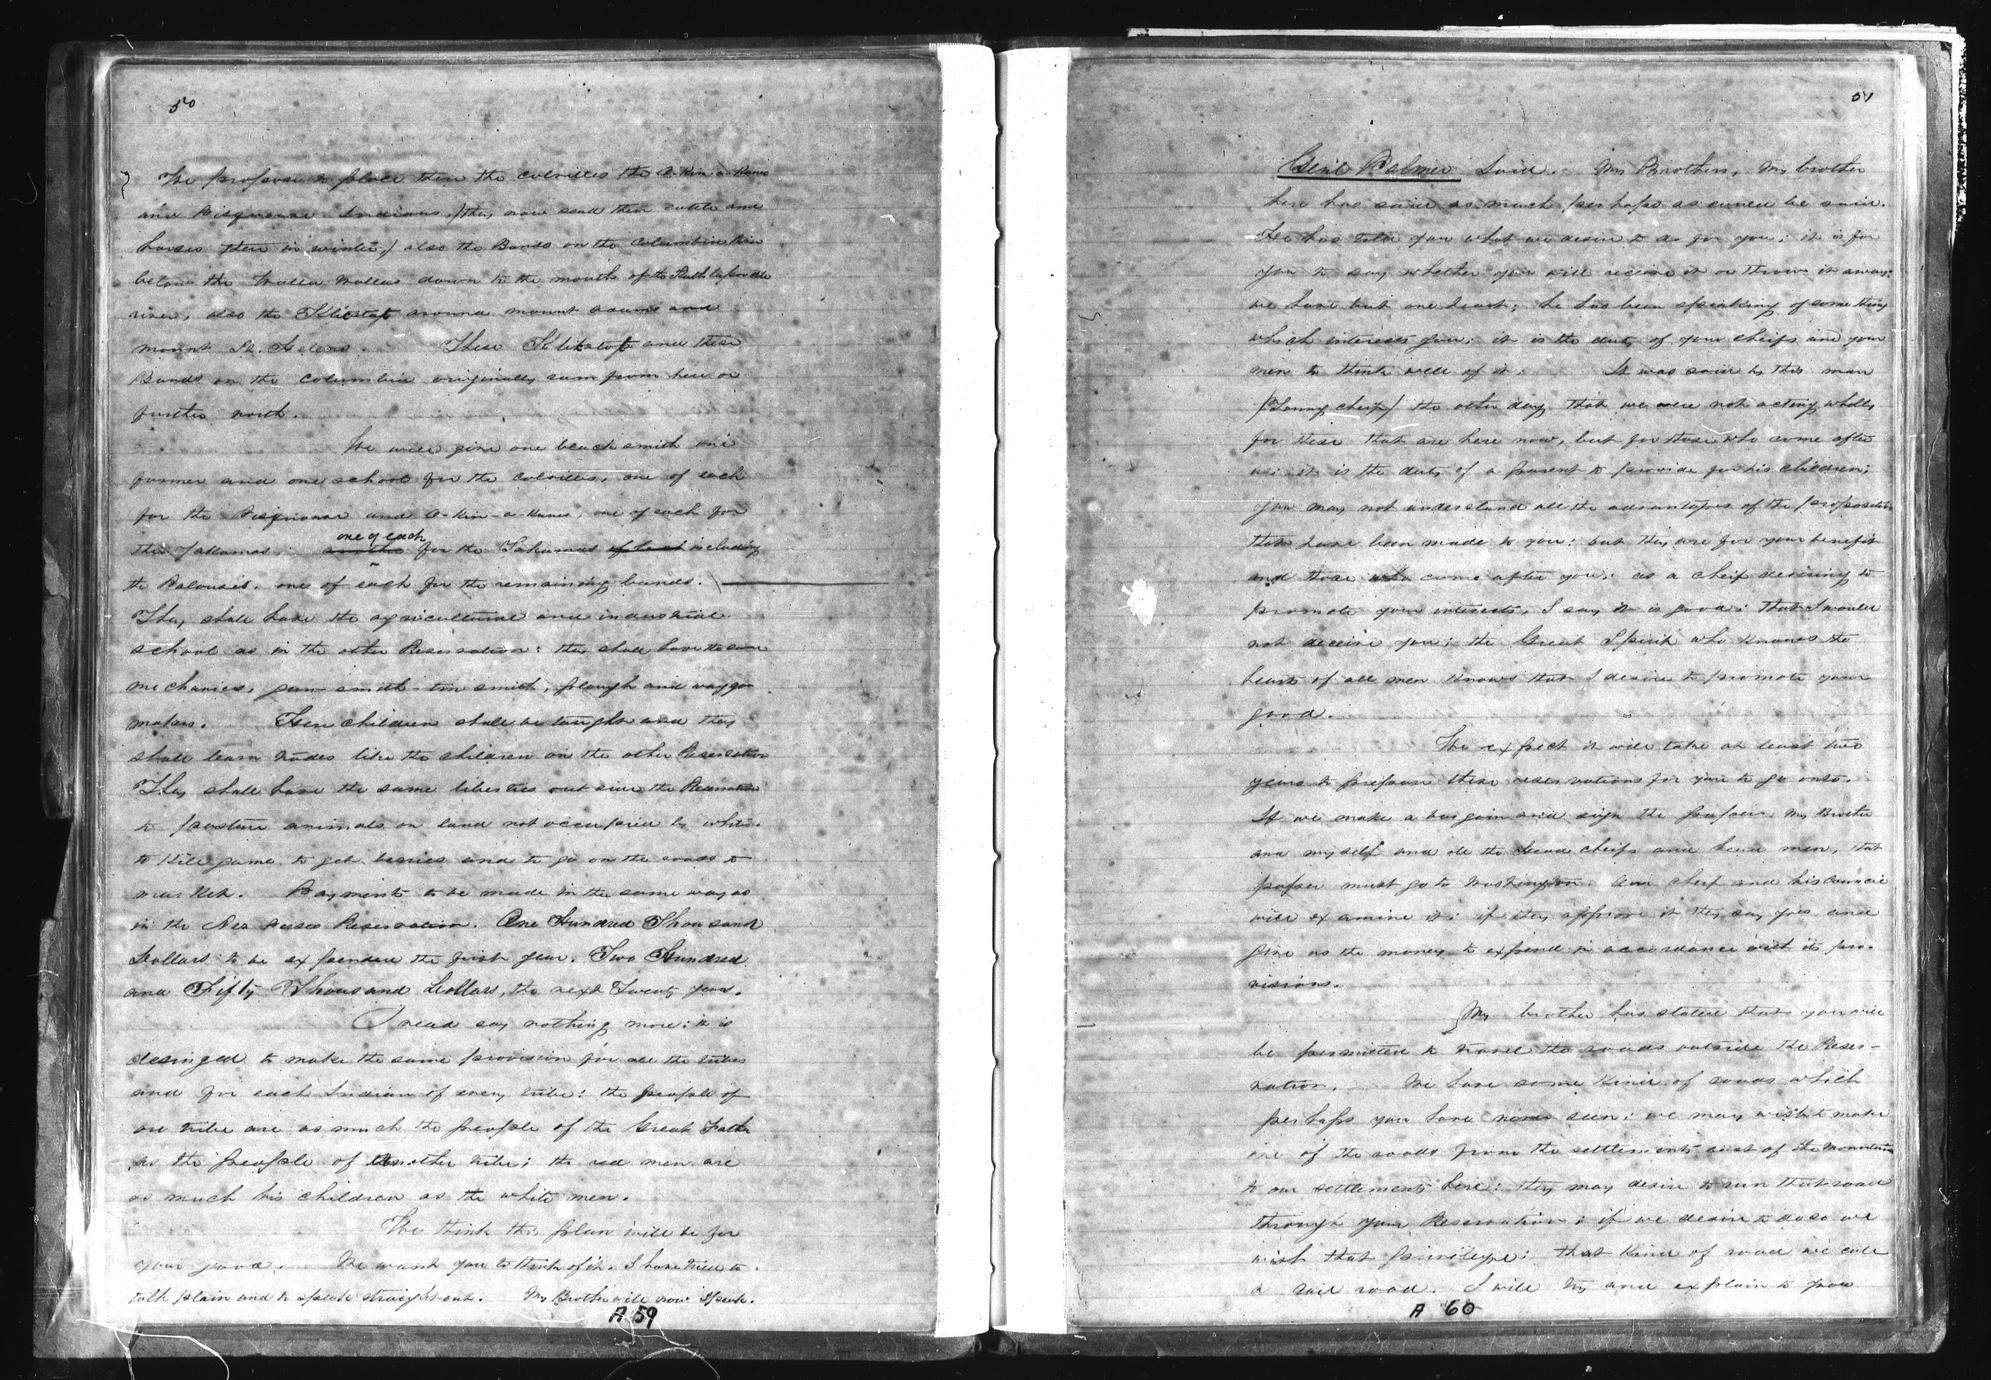 50
We propose to place there the colvilles the O-Kin-a-Kanes
and Pisquouse Indians, (they now send their cattle and
horses there in winter) also the Bands on the Columbia River
below the Walla Wallas down to the mouth of the Kathlapoodle
river, also the Klicatat around mount adams and
mount St. Helens. These Klikatat and these
Bands on the Columbia originally came from here or
further north.
We will give one black smith one
farmer and one school for the colvilles, one of each
for the Pisquouse and O-Kin-a-Kanes, one of each for
the Yakamas, one of each for the Yakamas including
the Palouses, one of each for the remaining bands.
They shall have the agricultural and industrial
school as in the other Reservation: they shall have the same
mechanics, gun smith tin smith, plough and waggon
makers. Their children shall be taught and they
shall learn trades like the children on the other Reservation
They shall have the same liberties outside the Reservation
to pasture animals on land not occupied by whites
to kill game to get berries and to go on the roads to
market. Payments to be made in the same way as
in the Nez Perses Reservation. One Hundred Thousand
Dollars to be expended the first year. Two Hundred
and Fifty Thousand Dollars, the next Twenty years.
I need say nothing more: it is
desinged to make the same provision for all the tribes
and for each Indian of every tribe: the people of
one tribe are as much the people of the Great Father
as the people of another tribe; the red men are
as much his children as the white men.
We think this plan will be for
your good. We want you to think of it. I have tried to
talk plain and to speak straight out. My Brother will now speak.
A 59
51
Genl Palmer Said. My Brothers, My brother
here has said as much perhaps as could be said.
He has told you what we desire to do for you; it is for
you to say whether you will receive it or throw it away:
we have but one heart; he has been speaking of something
which interests you; it is the duty of your cheifs and your
men to think well of it: It was said by this man
(Young cheif) the other day that we were not acting wholly
for these that are here now, but for those who come after
us: it is the duty of a parent to provide for his children;
you may not understand all the advantages of the propositions
that have been made to you: but they are for your benefit
and those who come after you: as a cheif desiring to
promote your interests, I say it is good: that I would
not deceive you; the Great Spirit who knows the
heart of all men knows that I desire to promote your
good.
We expect it will take at least two
years to prepare these reservations for you to go onto.
If we make a bargain and sign the paper, My Brother
and myself and all the head cheifs and head men, that
paper must go to Washington. Our cheif and his council
will examine it; if they approve it they say yes and
give us the money to expend in accordance with its pro-
visions.
My brother has stated that you will
be permitted to travel the roads outside the Reser-
vation. We have some kind of roads which
perhaps you have never seen: we may wish to make
one of the roads from the settlements east of the Mountains
to our settlements here: they may desire to run that road
through your Reservation; if we desire to do so we
wish that privilege: that kind of road we call
a rail road. I will try and explain to you
A 60